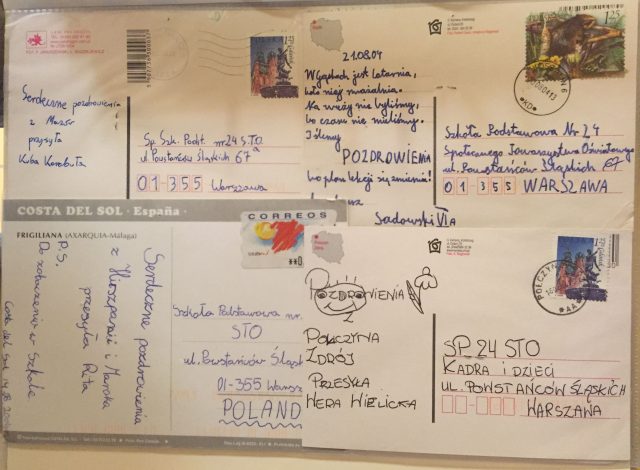 Serdeczne pozdrowienia
z Mazur
przesyła
Kuba
Sp. Szk. Podst. nr 24 STO
ul. Powstańców Śląskich 67a
01-355 Warszawa
21.08.04
W Gąskach jest latarnia,
Na wieży nie byliśmy,
bo czasu nie mieliśmy.
I ślemy
POZDROWIENIA
bo plan lekcji się zmienia!
Sadowski VIa
1,25
Szkoła Podstawowa Nr 24
Społecznego Towarzystwa Oświatowego
ul. Powstańców Śląskich 67
01 355 WARSZAWA
COSTA DEL SOL · España ·
FRIGILIANA (AXARQUIA-Málaga)
CORREOS
Serdeczne pozdrowienia
z Hiszpanii i Maroka
przesyła Rita
P.S.
Do zobaczenia w Szkole
Costa del Sol
Szkoła Podstawowa nr.
STO
ul. Powstańców Śląsk
01-355 Warsz
POLAND
POZDROWIENIA
Z
POŁCZYNA
ZDRÓJ
PRZESYŁA
WERA WIELICKA
SP 24 STO
KADRA I DZIECI
UL. POWSTAŃCÓW ŚLĄSKICH
WARSZAWA